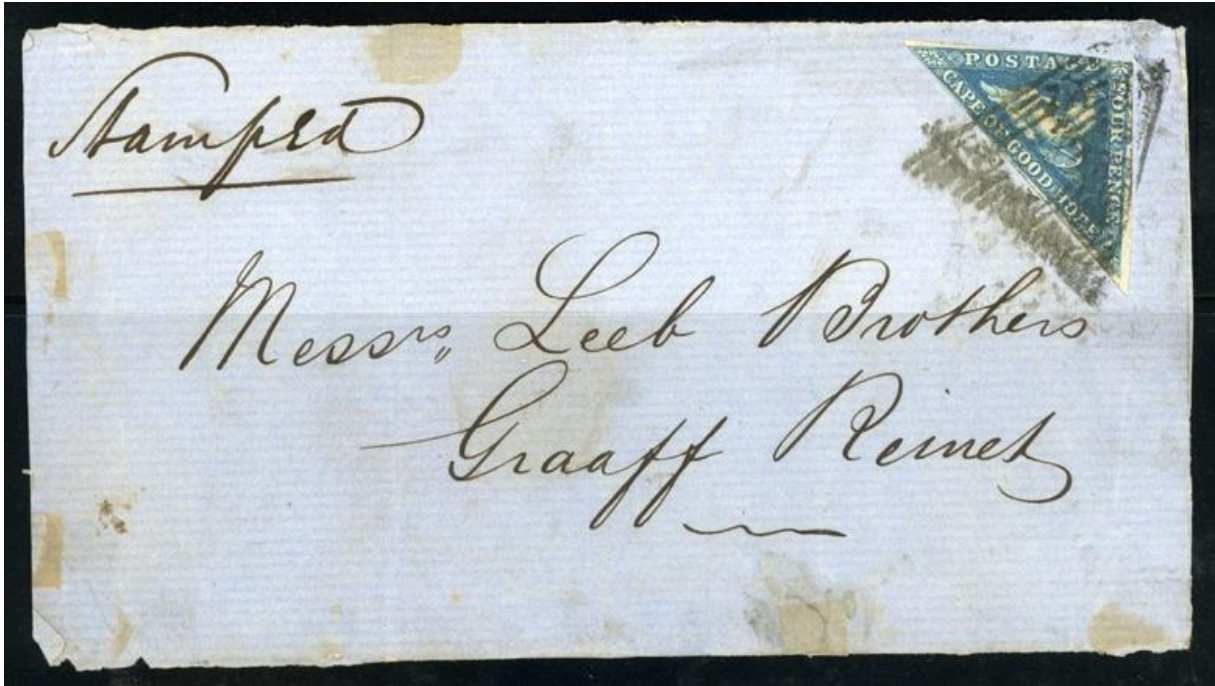 Stamped
POSTAGE
FOUR PENCE
CAPE OF GOOD HOPE
Messrs,, Leeb Brothers
Graaff Reinet